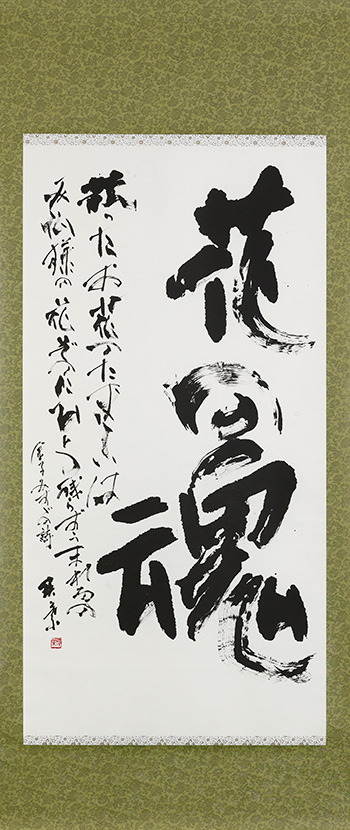 花の魂
散ったお花のたましいは
み仏様の花ぞのにひとつ残らず生れるの
金子みすゞの詩